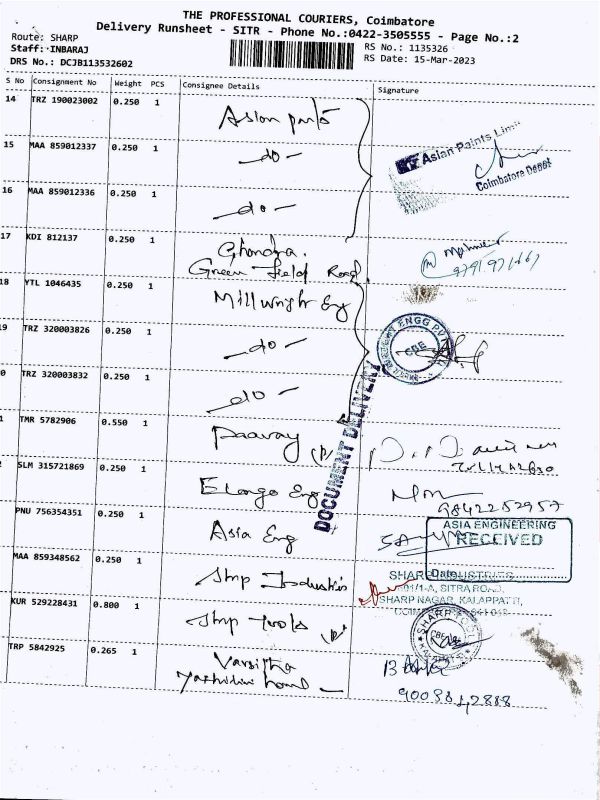 THE PROFESSIONAL COURIERS, Coimbatore
Delivery Runsheet - SITR - Phone No.:0422-3505555 - Page No.:2
Route: SHARP
Staff: INBARAJ
DRS No.: DCJB113532602
RS No.: 1135326
RS Date: 15-Mar-2023
S No Consignment No Weight PCS Consignee Details Signature
14 TRZ 190023002 0.250 1 Asian
Asian Paints Limit
Coimbatore Depot
15 MAA 859012337 0.250 1 -do-
16 MAA 859012336 0.250 1 -do-
17 KDI 812137 0.250 1 Chandra.
Green Field Road
18 YTL 1046435 0.250 1 Millwright Eng
9 TRZ 320003826 0.250 1 -do-
CBE
0 TRZ 320003832 0.250 1 do-
DOCUMENT DELIVERY
1 TMR 5782906 0.550 1 Paavay (P)
SLM 315721869 0.250 1 Elango Eng
9842252957
PNU 756354351 0.250 1 Asia Eng
ASIA ENGINEERING
RECEIVED
Date
MAA 859348562 0.250 1 Shrp Industries
SHARP INDUSTRIES
SITRA ROAD,
SHARP NAGAR, KALAPPATTI,
KUR 529228431 0.800 1 Shrp Tools
SHARP TOOLS
CBE
TRP 5842925 0.265 1 Varsitha